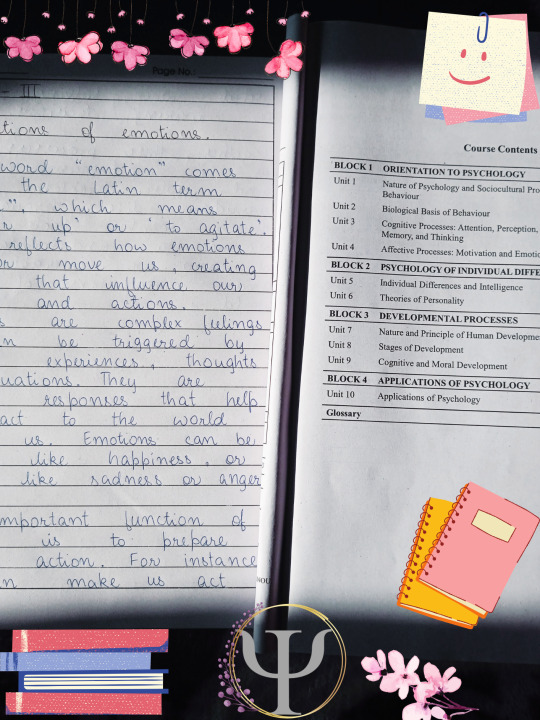 Page No.
- III
tions of emotions.
word "emotion" comes
the Latin term
", which means
r up" or "to agitate".
reflects how emotions
or move us, creating
that influence our
and actions.
s are complex feelings
n be triggered by
experiences, thoughts
uations. They are
responses that help
act to the world
us. Emotions can be
like happiness, or
like sadness or anger
mportant function of
is to prepare
action. For instance
n make us act
NOU
Course Contents
BLOCK 1 ORIENTATION TO PSYCHOLOGY
Unit 1 Nature of Psychology and Sociocultural Pro
Behaviour
Unit 2 Biological Basis of Behaviour
Unit 3 Cognitive Processes: Attention, Perception,
Memory, and Thinking
Unit 4 Affective Processes: Motivation and Emotio
BLOCK 2 PSYCHOLOGY OF INDIVIDUAL DIFFE
Unit 5 Individual Differences and Intelligence
Unit 6 Theories of Personality
BLOCK 3 DEVELOPMENTAL PROCESSES
Unit 7 Nature and Principle of Human Developme
Unit 8 Stages of Development
Unit 9 Cognitive and Moral Development
BLOCK 4 APPLICATIONS OF PSYCHOLOGY
Unit 10 Applications of Psychology
Glossary
Ψ